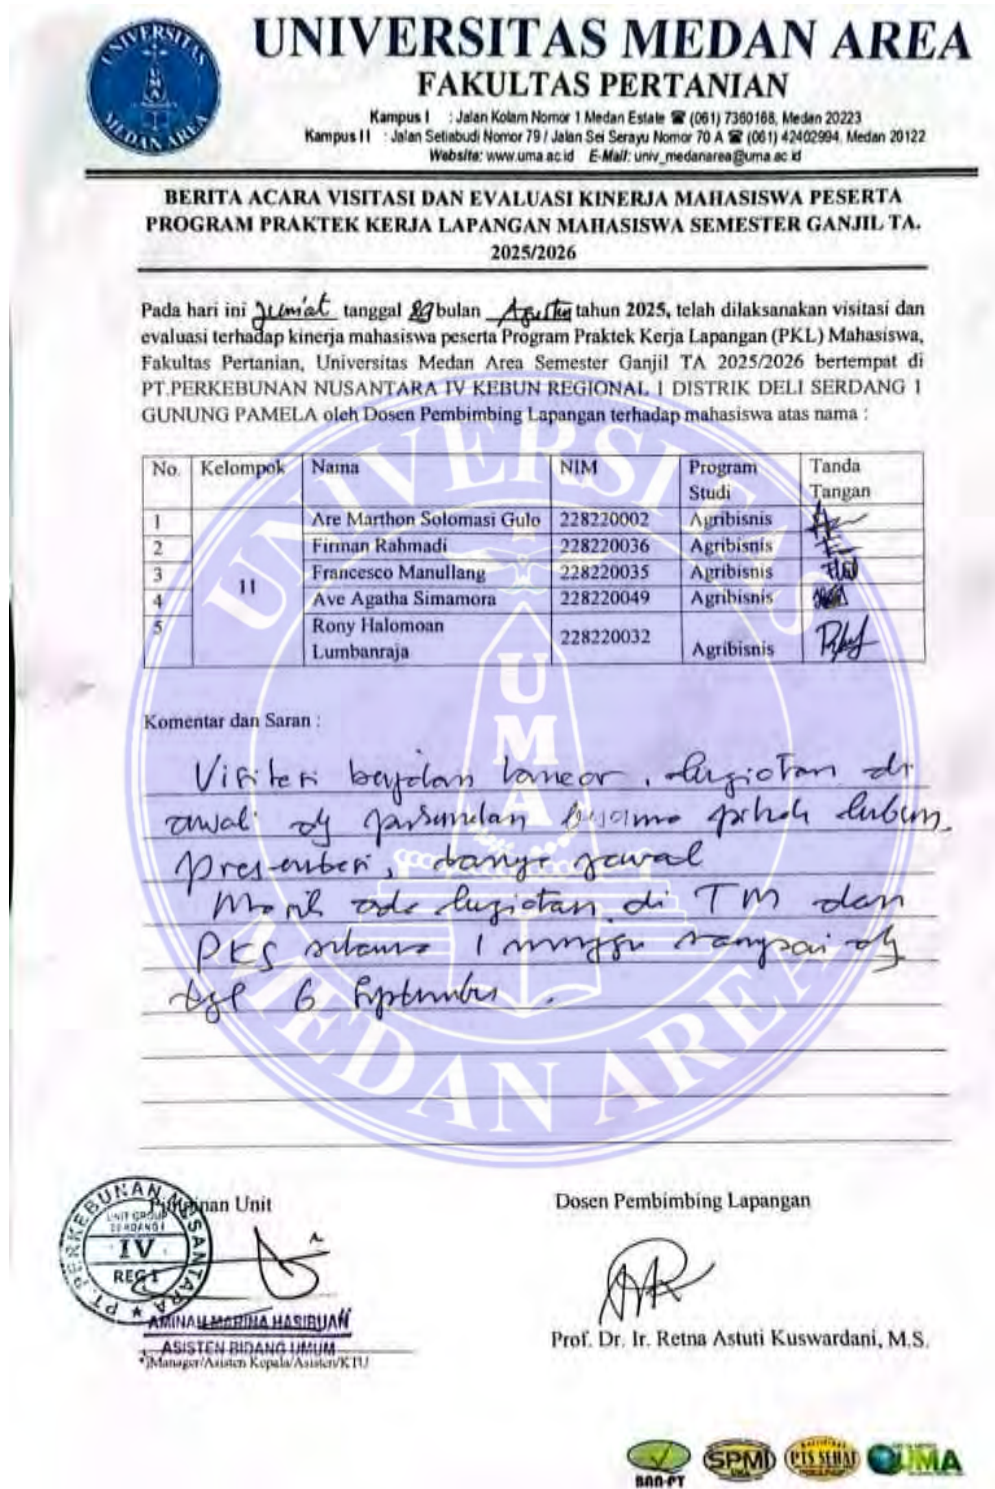 UNIVERSITAS MEDAN AREA
FAKULTAS PERTANIAN
Kampus I : Jalan Kolam Nomor 1 Medan Estate ☎ (061) 7360168, Medan 20223
Kampus II : Jalan Setiabudi Nomor 79 / Jalan Sei Serayu Nomor 70 A ☎ (061) 42402994, Medan 20122
Website: www.uma.ac.id E-Mail: univ_medanarea@uma.ac.id
UNIVERSITAS MEDAN AREA
BERITA ACARA VISITASI DAN EVALUASI KINERJA MAHASISWA PESERTA
PROGRAM PRAKTEK KERJA LAPANGAN MAHASISWA SEMESTER GANJIL TA.
2025/2026
Pada hari ini Jum'at tanggal 29 bulan Agustus tahun 2025, telah dilaksanakan visitasi dan
evaluasi terhadap kinerja mahasiswa peserta Program Praktek Kerja Lapangan (PKL) Mahasiswa,
Fakultas Pertanian, Universitas Medan Area Semester Ganjil TA 2025/2026 bertempat di
PT.PERKEBUNAN NUSANTARA IV KEBUN REGIONAL 1 DISTRIK DELI SERDANG 1
GUNUNG PAMELA oleh Dosen Pembimbing Lapangan terhadap mahasiswa atas nama :
No. Kelompok Nama NIM Program Studi Tanda Tangan
1 Are Marthon Solomasi Gulo 228220002 Agribisnis
2 Firman Rahmadi 228220036 Agribisnis
3 Francesco Manullang 228220035 Agribisnis
11
4 Ave Agatha Simamora 228220049 Agribisnis
5 Rony Halomoan Lumbanraja 228220032 Agribisnis
UNIVERSITAS MEDAN AREA
UMA
Komentar dan Saran :
Visitasi berjalan lancar, kegiatan di
awali dg bersama pihak kebun,
presentasi, tanya jawab
Masih ada kegiatan di TM dan
PKS selama 1 minggu sampai dg
tgl 6 September.
Pimpinan Unit
Dosen Pembimbing Lapangan
PT. PERKEBUNAN NUSANTARA IV
UNIT GROUP
SERDANG I
IV
REG I
AMINAH MARINA HASIBUAN
ASISTEN BIDANG UMUM
*)Manager/Asisten Kepala/Asisten/KTU
Prof. Dr. Ir. Retna Astuti Kuswardani, M.S.
BAN-PT
SPMI
PTS SEHAT
UMA